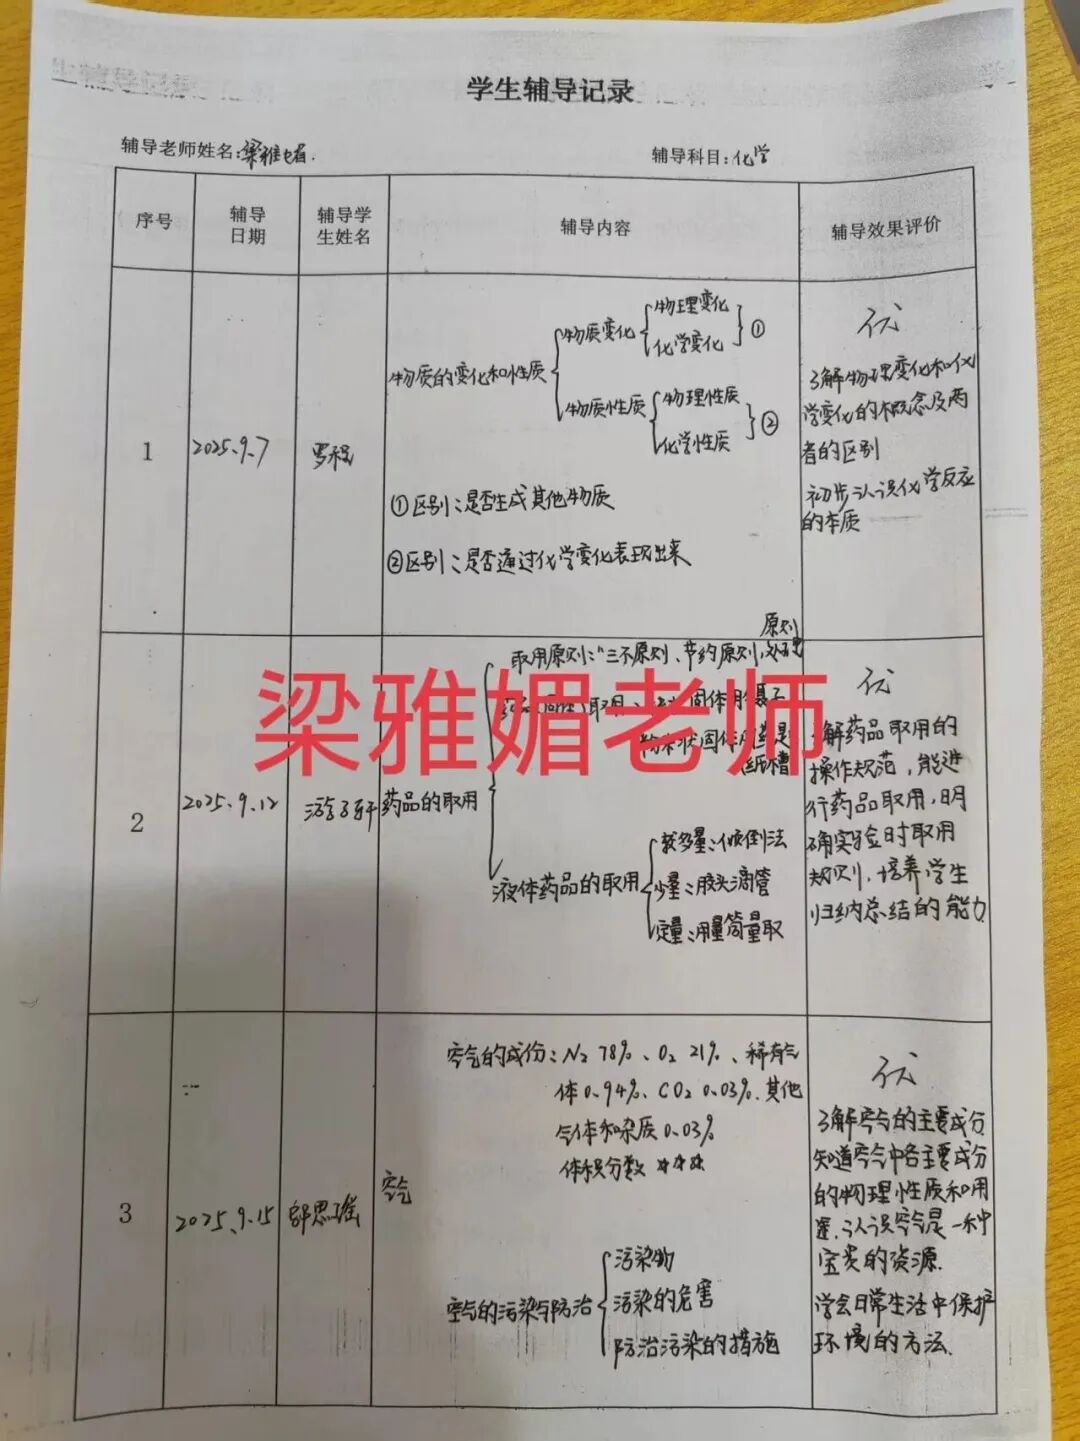 学生辅导记录
辅导老师姓名:梁雅媚.
辅导科目:化学
序号
辅导
日期
辅导学
生姓名
辅导内容
辅导效果评价
1
2025.9.7
罗程
物质的变化和性质
物质变化
物理变化
化学变化
①
物质性质
物理性质
化学性质
②
①区别:是否生成其他物质
②区别:是否通过化学变化表现出来
优
了解物理变化和化
学变化的概念及两
者的区别
初步认识化学反应
的本质
2
2025.9.12
药品的取用
原则
取用原则:"三不原则、节约原则,处理
取用
固体用镊子
粉末状固体用药匙
纸槽
液体药品的取用
较多量:倾倒法
少量:胶头滴管
定量:用量筒量取
优
了解药品取用的
操作规范,能进
行药品取用,明
确实验时取用
规则,培养学生
归纳总结的能力
梁雅媚老师
3
2025.9.15
邹思瑶
空气
空气的成份:N₂ 78%、O₂ 21%、稀有气
体0.94%、CO₂ 0.03%.其他
气体和杂质0.03%
体积分数 ***
空气的污染与防治
污染物
污染的危害
防治污染的措施
优
了解空气的主要成分,
知道空气中各主要成分
的物理性质和用
途,认识空气是一种
宝贵的资源.
学会日常生活中保护
环境的方法.